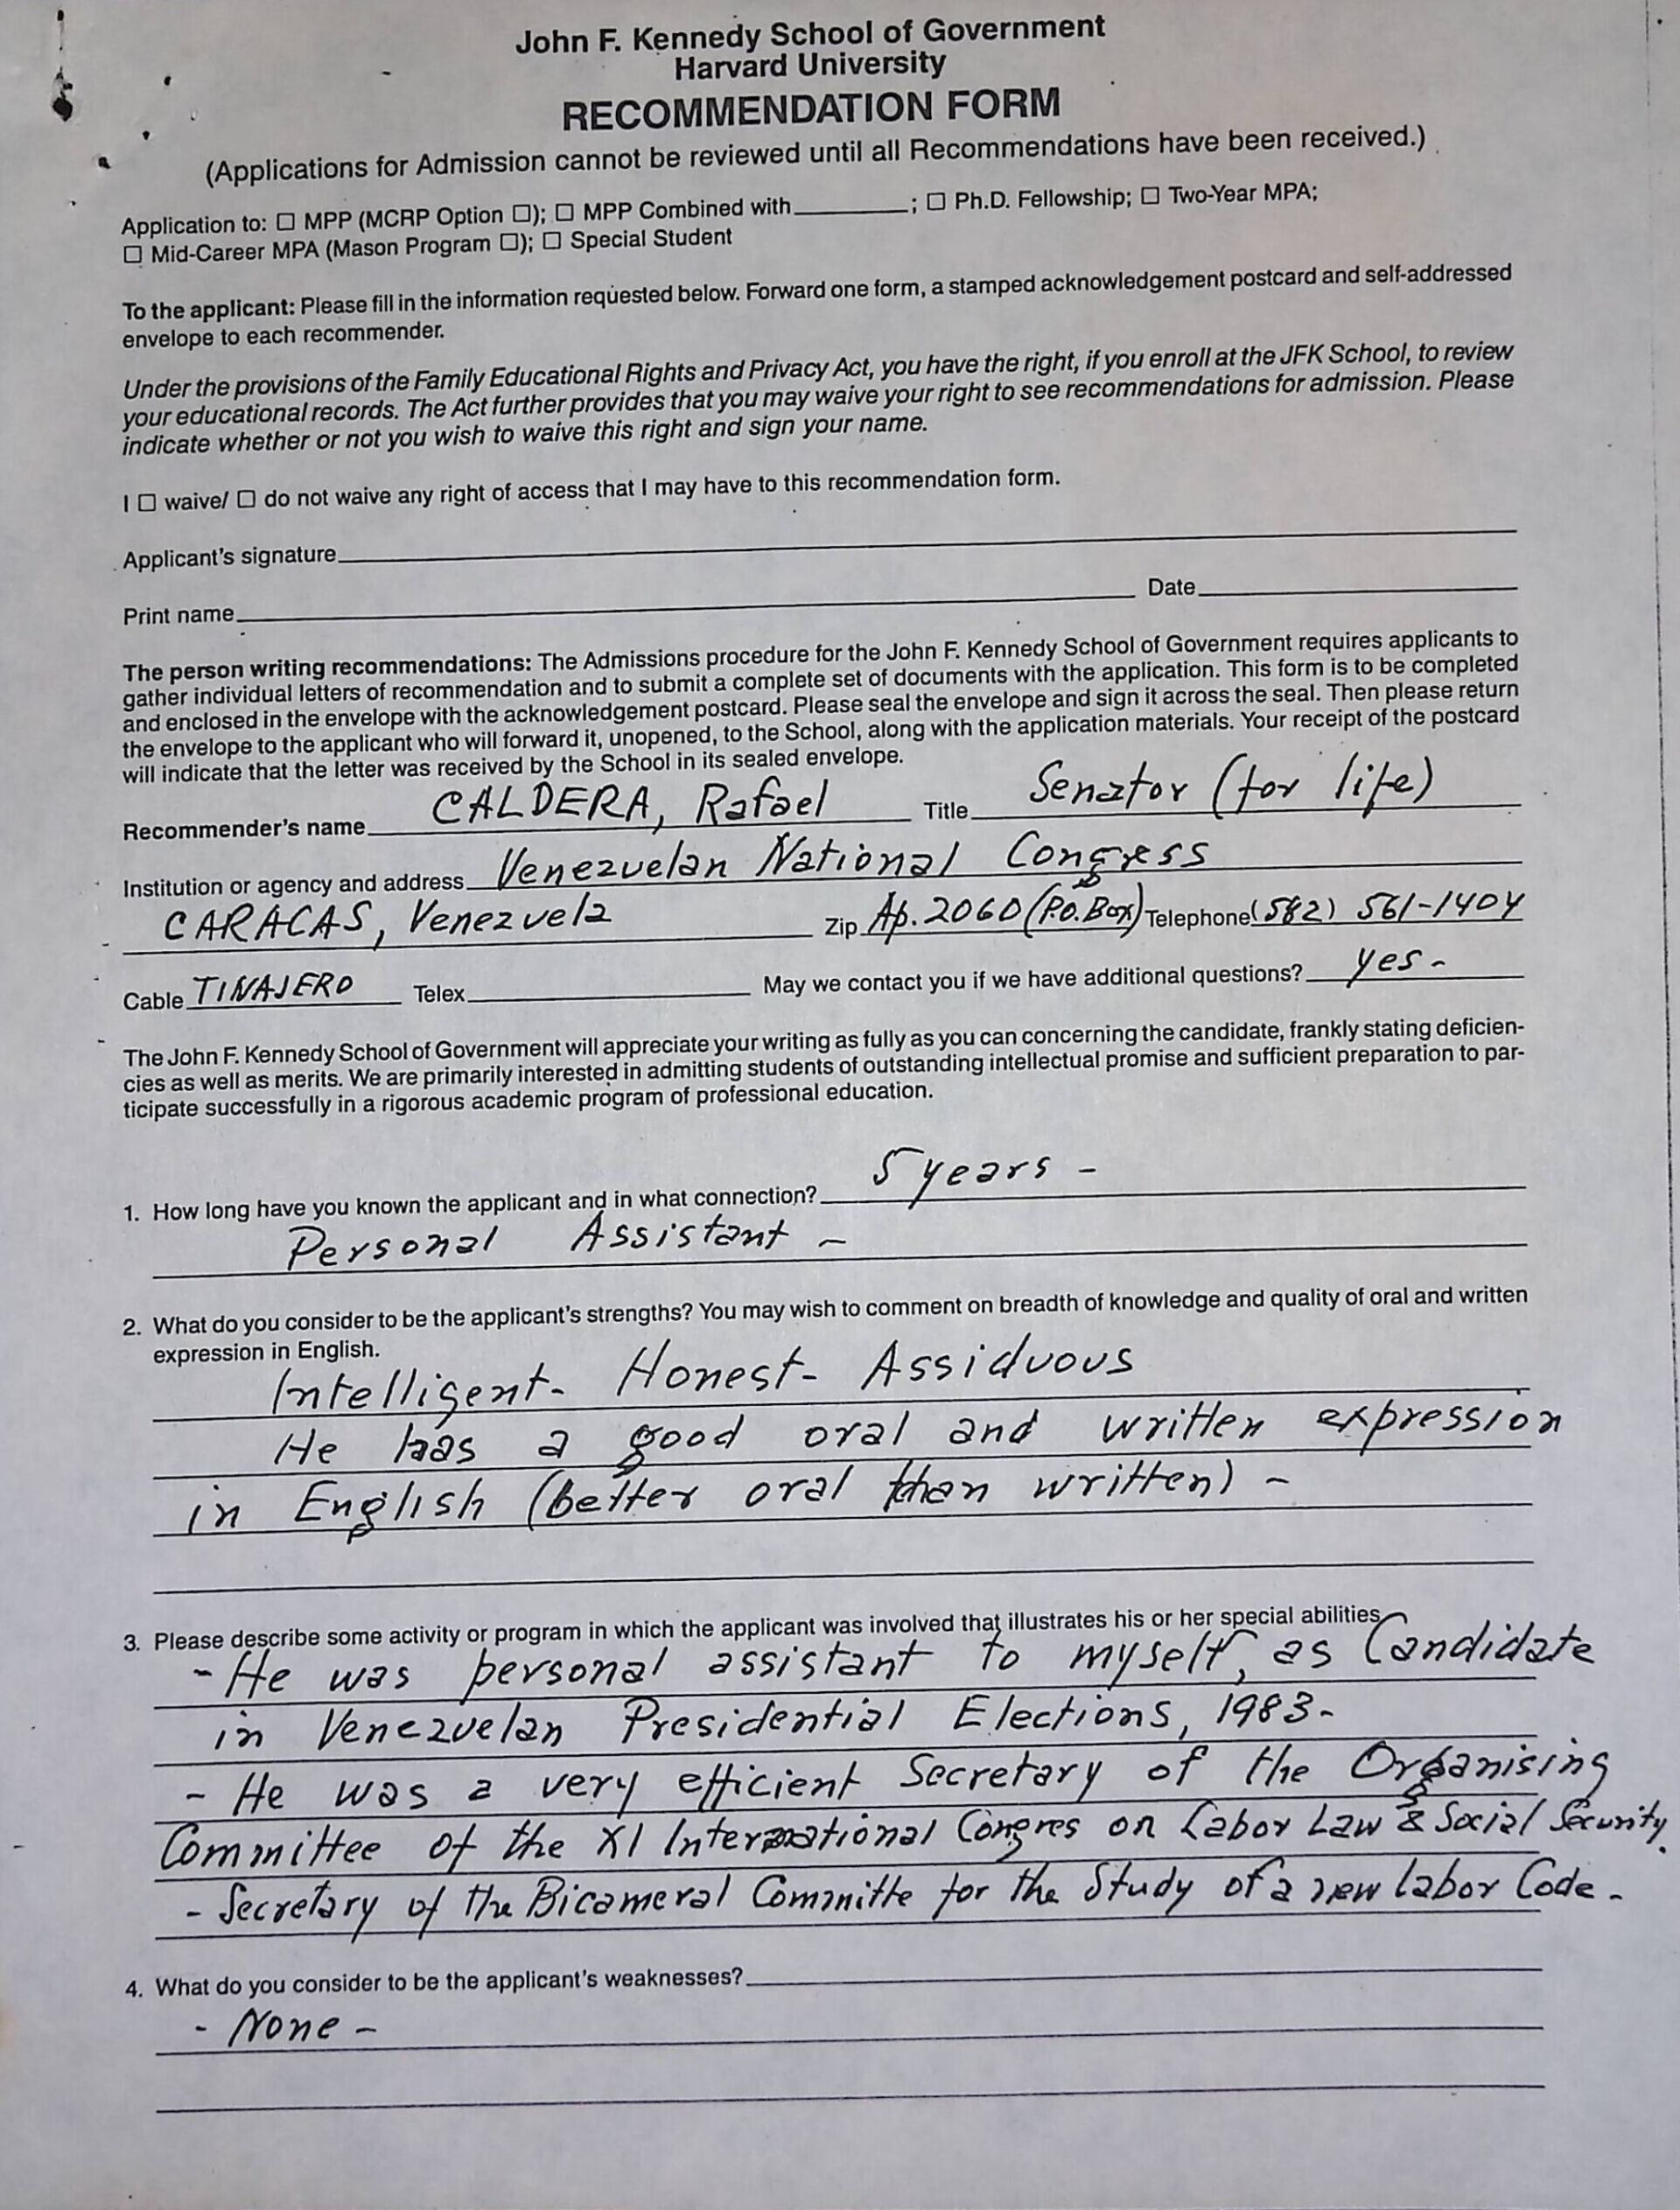 John F. Kennedy School of Government
Harvard University
RECOMMENDATION FORM
(Applications for Admission cannot be reviewed until all Recommendations have been received.)
Application to: ☐ MPP (MCRP Option ☐); ☐ MPP Combined with__________; ☐ Ph.D. Fellowship; ☐ Two-Year MPA;
☐ Mid-Career MPA (Mason Program ☐); ☐ Special Student
To the applicant: Please fill in the information requested below. Forward one form, a stamped acknowledgement postcard and self-addressed
envelope to each recommender.
Under the provisions of the Family Educational Rights and Privacy Act, you have the right, if you enroll at the JFK School, to review
your educational records. The Act further provides that you may waive your right to see recommendations for admission. Please
indicate whether or not you wish to waive this right and sign your name.
I ☐ waive/ ☐ do not waive any right of access that I may have to this recommendation form.
Applicant's signature
Print name Date
The person writing recommendations: The Admissions procedure for the John F. Kennedy School of Government requires applicants to
gather individual letters of recommendation and to submit a complete set of documents with the application. This form is to be completed
and enclosed in the envelope with the acknowledgement postcard. Please seal the envelope and sign it across the seal. Then please return
the envelope to the applicant who will forward it, unopened, to the School, along with the application materials. Your receipt of the postcard
will indicate that the letter was received by the School in its sealed envelope.
Recommender's name CALDERA, Rafael Title Senator (for life)
Institution or agency and address Venezuelan National Congress
CARACAS, Venezuela Zip Ap. 2060 (P.O. Box) Telephone (582) 561-1404
Cable TINAJERO Telex May we contact you if we have additional questions? yes -
The John F. Kennedy School of Government will appreciate your writing as fully as you can concerning the candidate, frankly stating deficien-
cies as well as merits. We are primarily interested in admitting students of outstanding intellectual promise and sufficient preparation to par-
ticipate successfully in a rigorous academic program of professional education.
1. How long have you known the applicant and in what connection? 5 years -
Personal Assistant -
2. What do you consider to be the applicant's strengths? You may wish to comment on breadth of knowledge and quality of oral and written
expression in English.
Intelligent - Honest - Assiduous
He has a good oral and written expression
in English (better oral than written) -
3. Please describe some activity or program in which the applicant was involved that illustrates his or her special abilities
- He was personal assistant to myself, as Candidate
in Venezuelan Presidential Elections, 1983 -
- He was a very efficient Secretary of the Organising
Committee of the XI International Congres on Labor Law & Social Security.
- Secretary of the Bicameral Committe for the Study of a new Labor Code -
4. What do you consider to be the applicant's weaknesses?
- None -